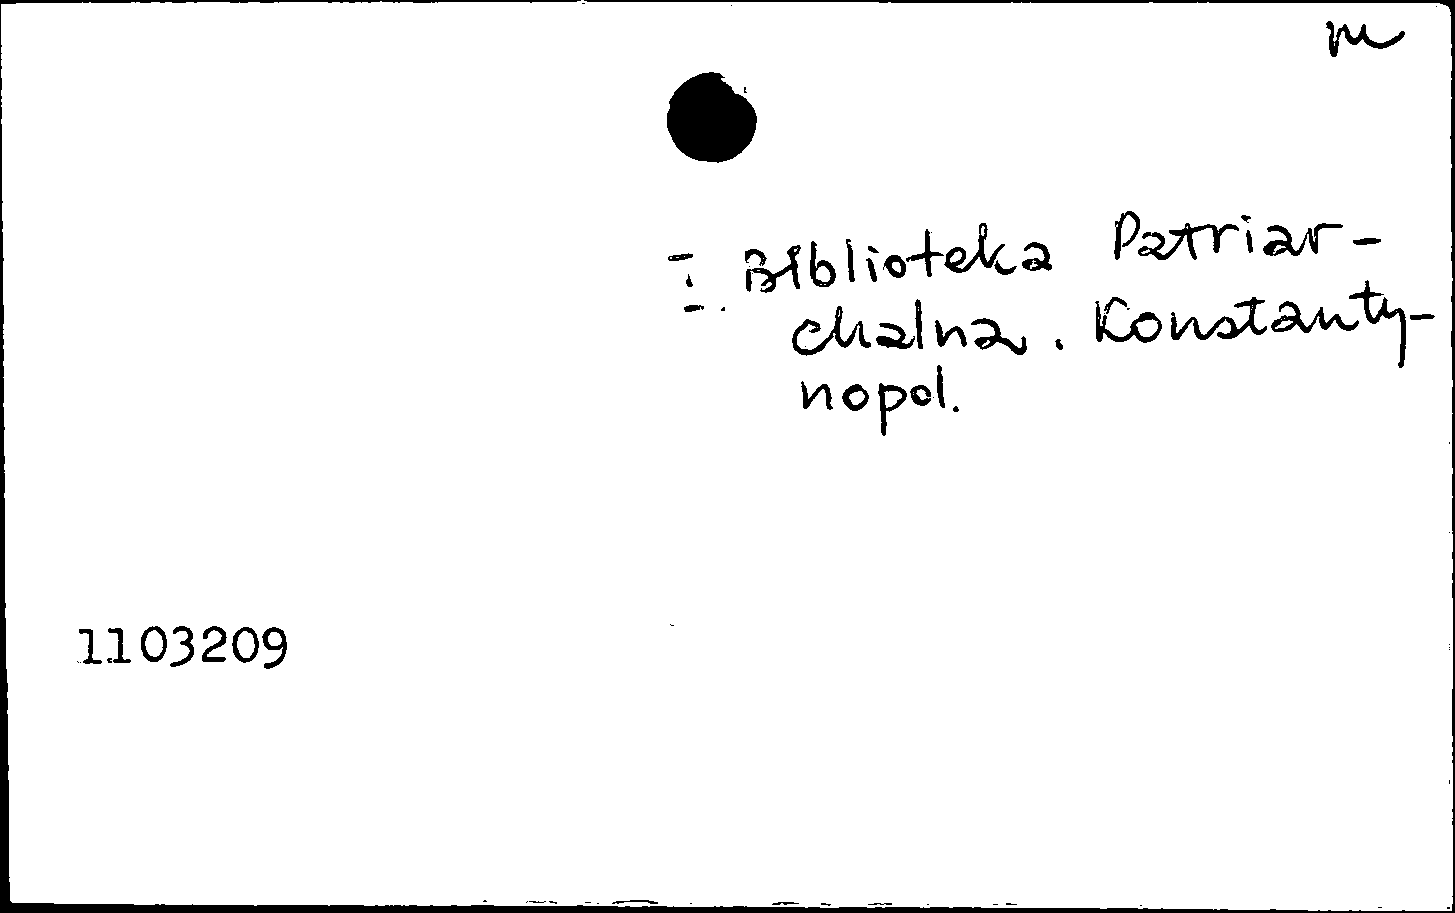 m
I. Biblioteka Patriar-
chalna. Konstanty-
nopol.
1103209